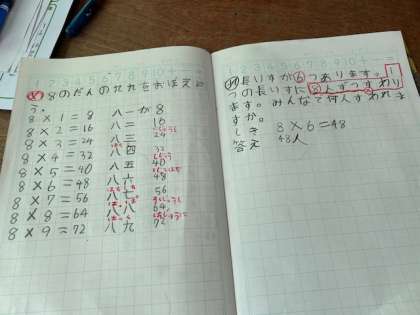 め 8のだんの九九をおぼえよ
う。
8×1=8 八一が 8
8×2=16 八二 16
8×3=24 八三 24
8×4=32 八四 32
8×5=40 八五 40
8×6=48 八六 48
8×7=56 八七 56
8×8=64 八八 64
8×9=72 八九 72
長いすが6つあります。1
つの長いすに8人ずつすわり
ます。みんなで何人すわれま
すか。
しき 8×6=48
答え 48人